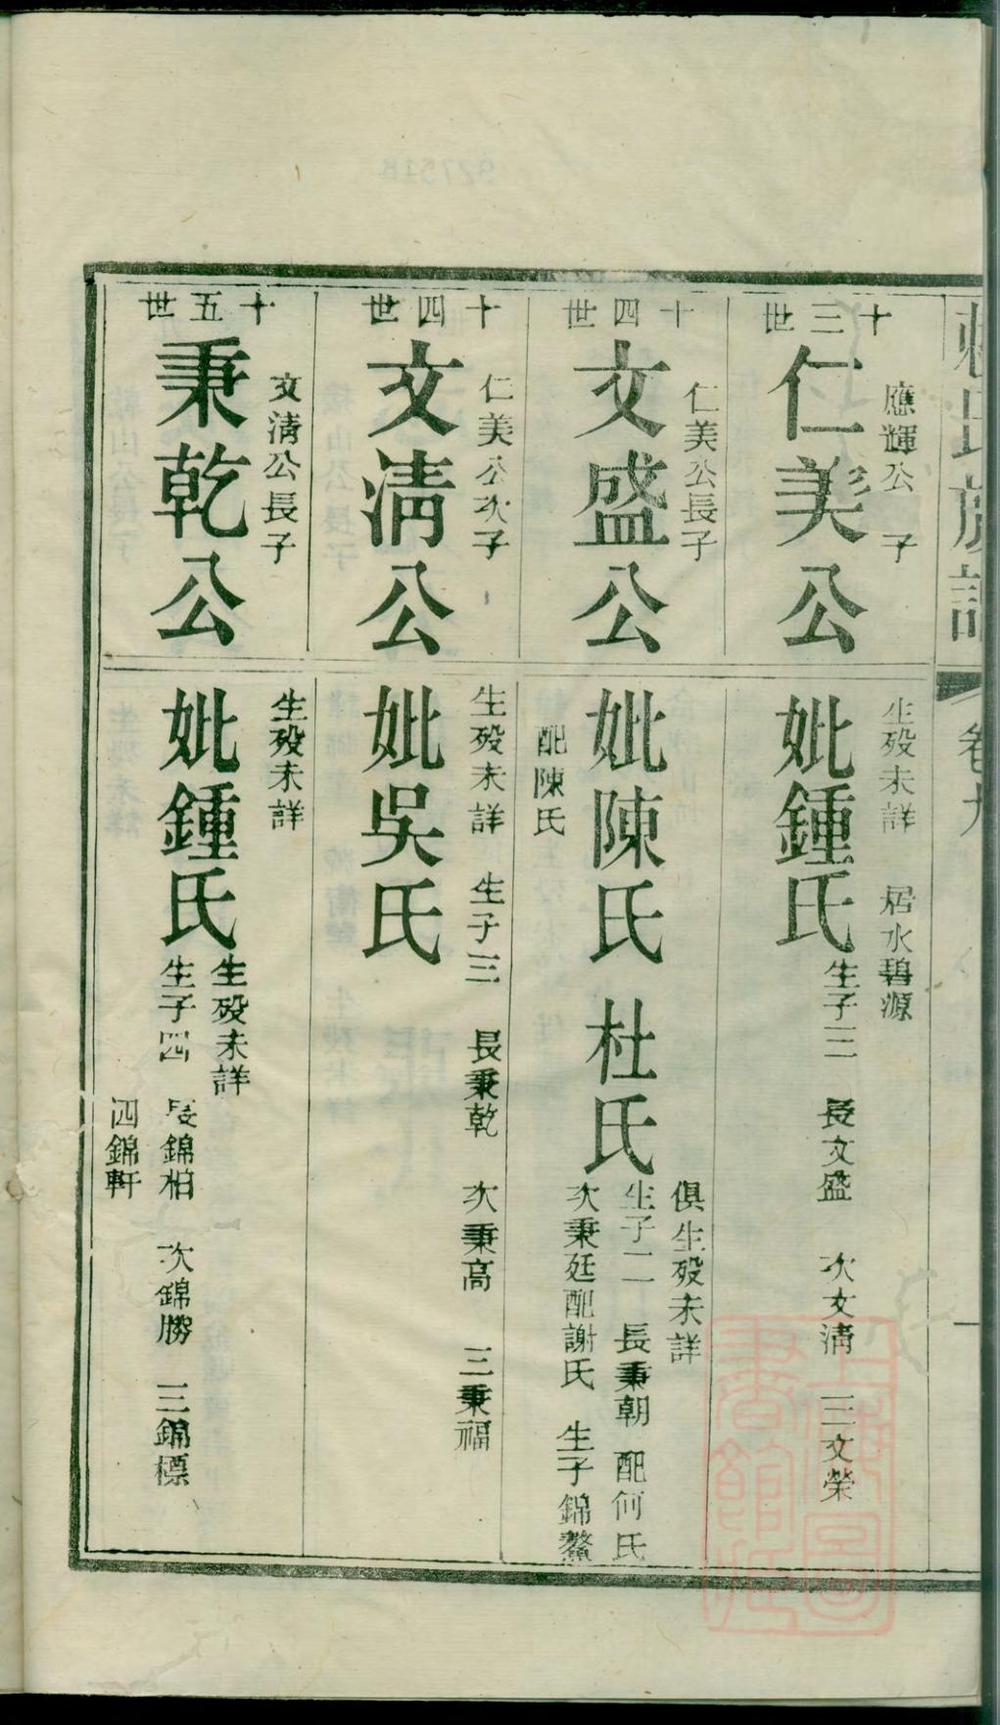 賴氏族譜 卷九 一
十三世
應輝公 子
仁美公
生歿未詳 居水碧源
妣鍾氏
生子三 長文盛 次文清 三文榮
十四世
仁美公長子
文盛公
妣陳氏 杜氏
俱生歿未詳
生子二 長秉朝 配何氏
次秉廷配謝氏 生子錦鰲
配陳氏
十四世
仁美公次子
文清公
生歿未詳 生子三 長秉乾 次秉高 三秉福
妣吳氏
十五世
文清公長子
秉乾公
生歿未詳
妣鍾氏
生歿未詳
生子四 長錦柏 次錦勝 三錦標
四錦軒